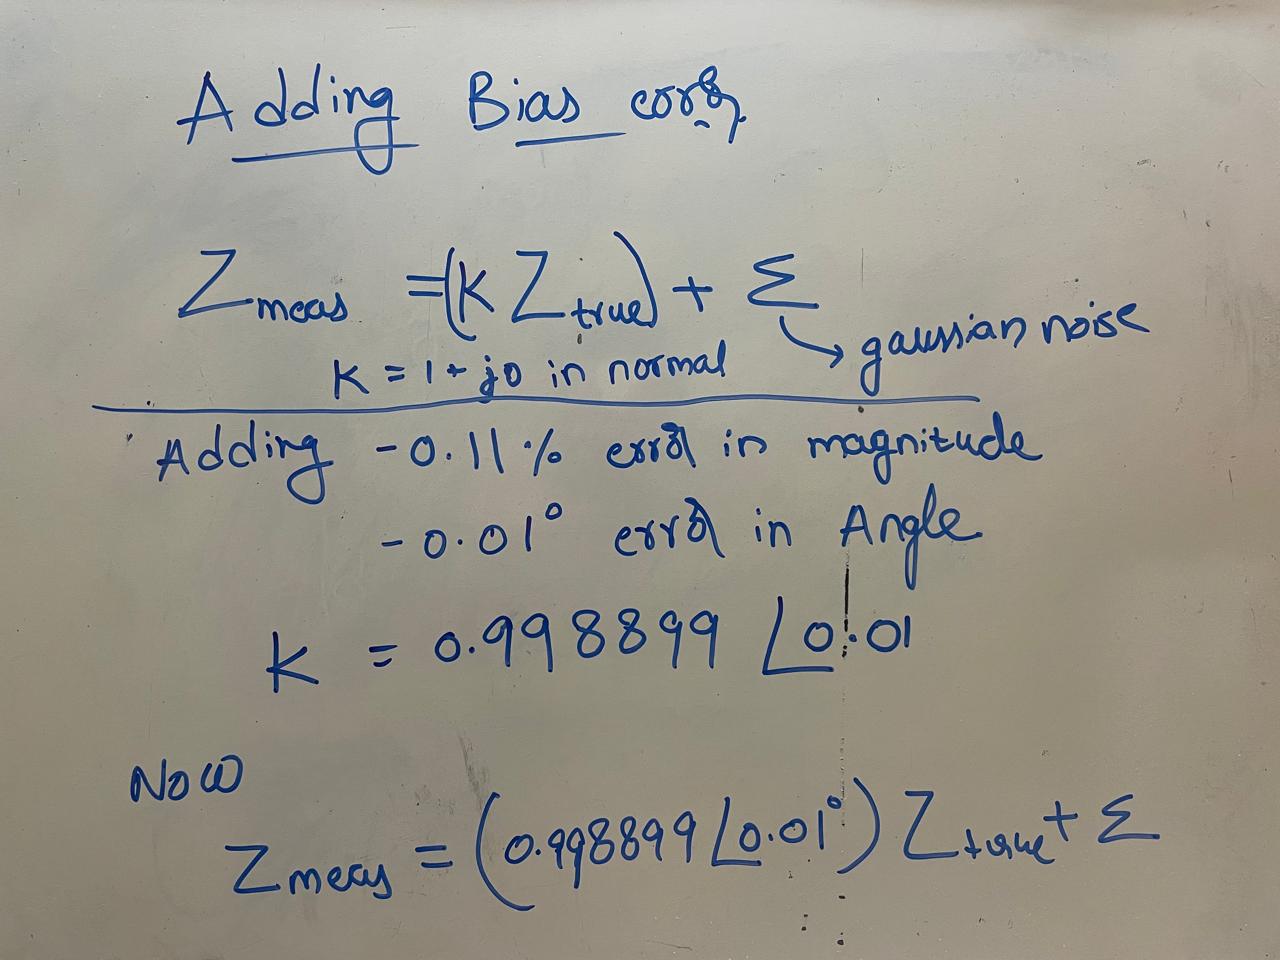 Adding Bias
Z meas = (K Z true) + Σ
K = 1 + j0 in normal
gaussian noise
Adding -0.11% error in magnitude
-0.01° error in Angle
K = 0.998899 ∠0.01
Now
Z meas = (0.998899 ∠0.01°) Z true + Σ